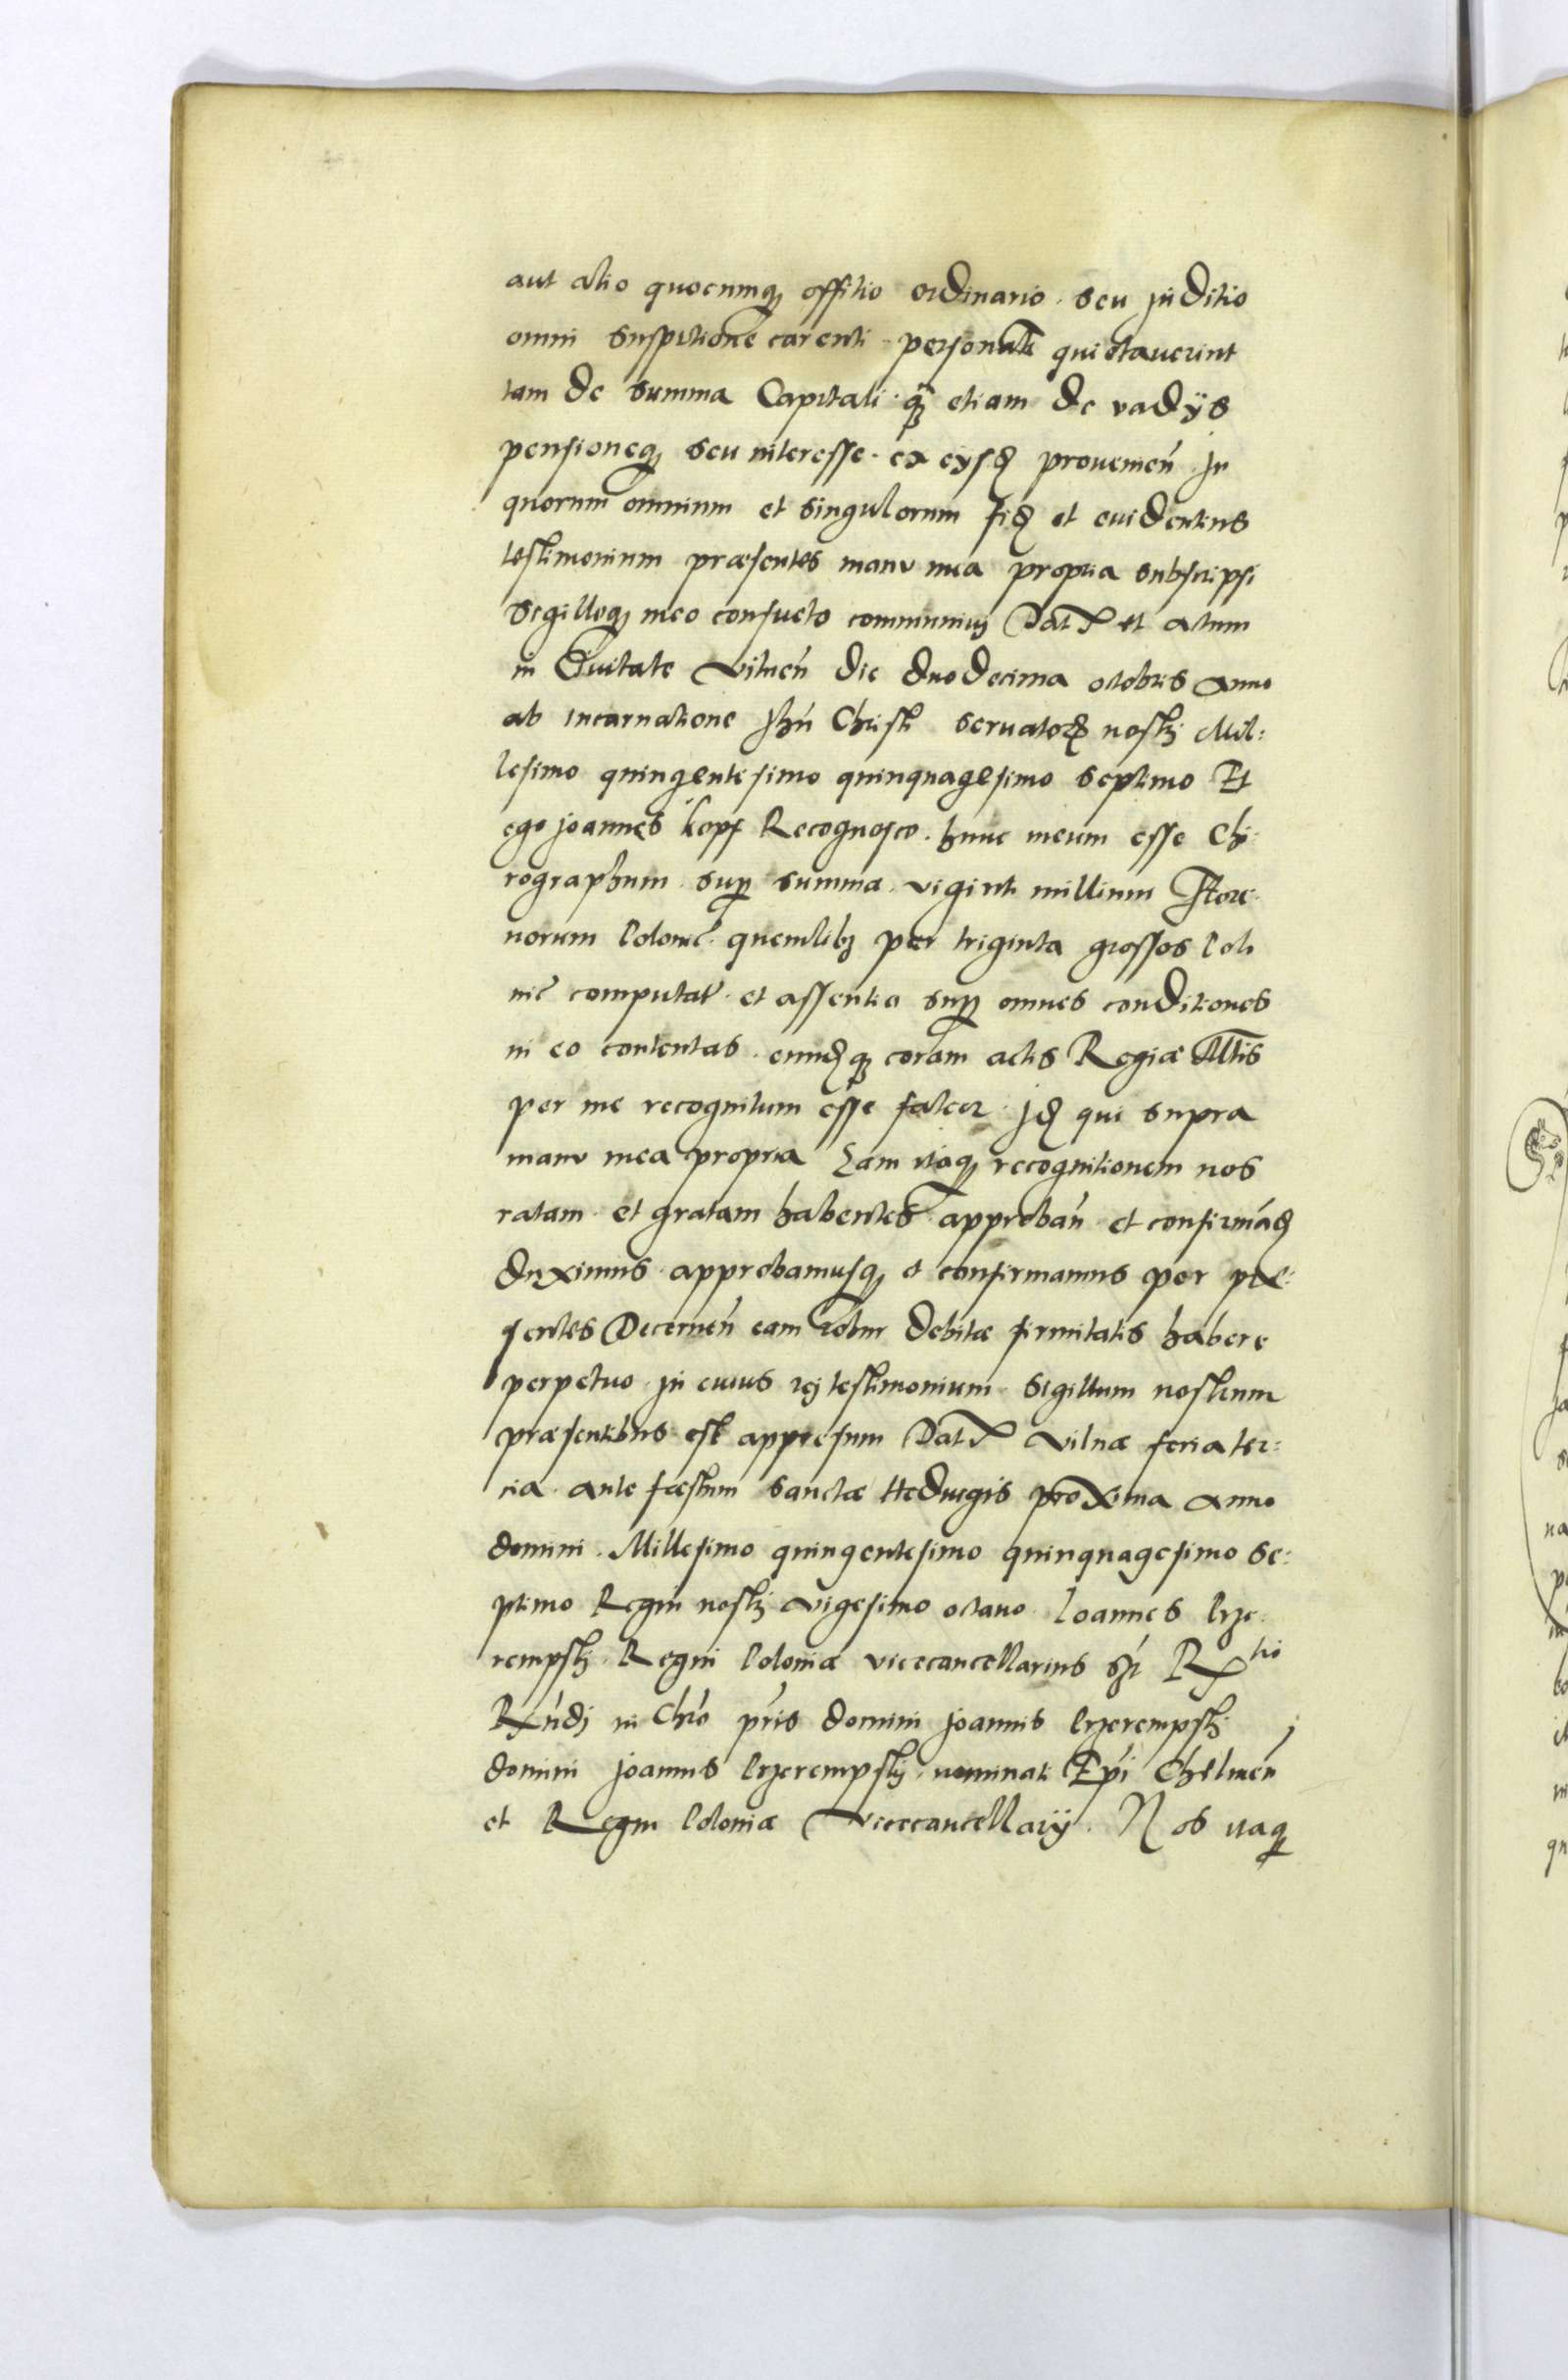 aut alio quocunq₃ offitio ordinario. seu juditio
omni suspitione carenti. personalr̃ quietauerint
tam de summa Capitali. q̃₃ etiam de vadÿs
pensioneq₃ seu interesse. ex eysd₃ prouenien̄ Jn
quorum omnium et singulorum fid₃ et euidentius
testimonium præsentes manu mea propria subscripsi
Sigilloq₃ meo consueto communiuj Dat̃ et actum
in Ciuitate Vilnen̄ die duodecima octobris Anno
ab incarnatione Jhū Christi seruatoris nostri Mil:
lesimo quingentesimo quinquagesimo septimo Et
ego joannes kopf Recognosco. hunc meum esse Chi:
rographum. sup summa. viginti millium Flore:
norum Polonic̃. quemlib₃ per triginta grossos Polo
nic̃ computat̃. et assentio sup omnes conditiones
in eo contentas. eumd₃q₃ coram actis Regiæ Mtis
per me recognitum esse fateor. Jd₃ qui supra
manu mea propria Eam itaq₃ recognitionem nos
ratam et gratam habentes. approban̄ et confirmād₃
duximus. approbamusq₃ et confirmamus per præ:
sentes Decernen̄ eam robur debitæ firmitatis habere
perpetuo. Jn cuius rej testimonium. Sigillum nostrum
præsentibus est appressum Dat̃ Vilnæ feria ter:
cia. ante fæstum sanctæ Heduigis proxima Anno
domini. Millesimo quingentesimo quinquagesimo se:
ptimo Regni nostri vigesimo octauo. Joannes Prze:
rempskj. Regni Poloniæ vicecancellarius sst̃ R̃tio
Rn̄dj in Chr̄o pr̄is domini joannis Przerempskj
domini joannis Przerempskj. nominati Ep̄i Chelmen̄
et Regni Poloniæ Vicecancellarÿ. Nos itaq₃